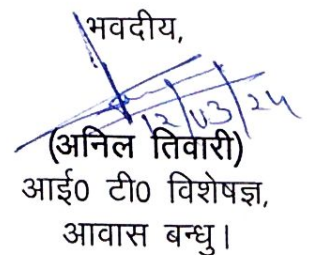 भवदीय,
12/03/24
(अनिल तिवारी)
आई0 टी0 विशेषज्ञ,
आवास बन्धु।